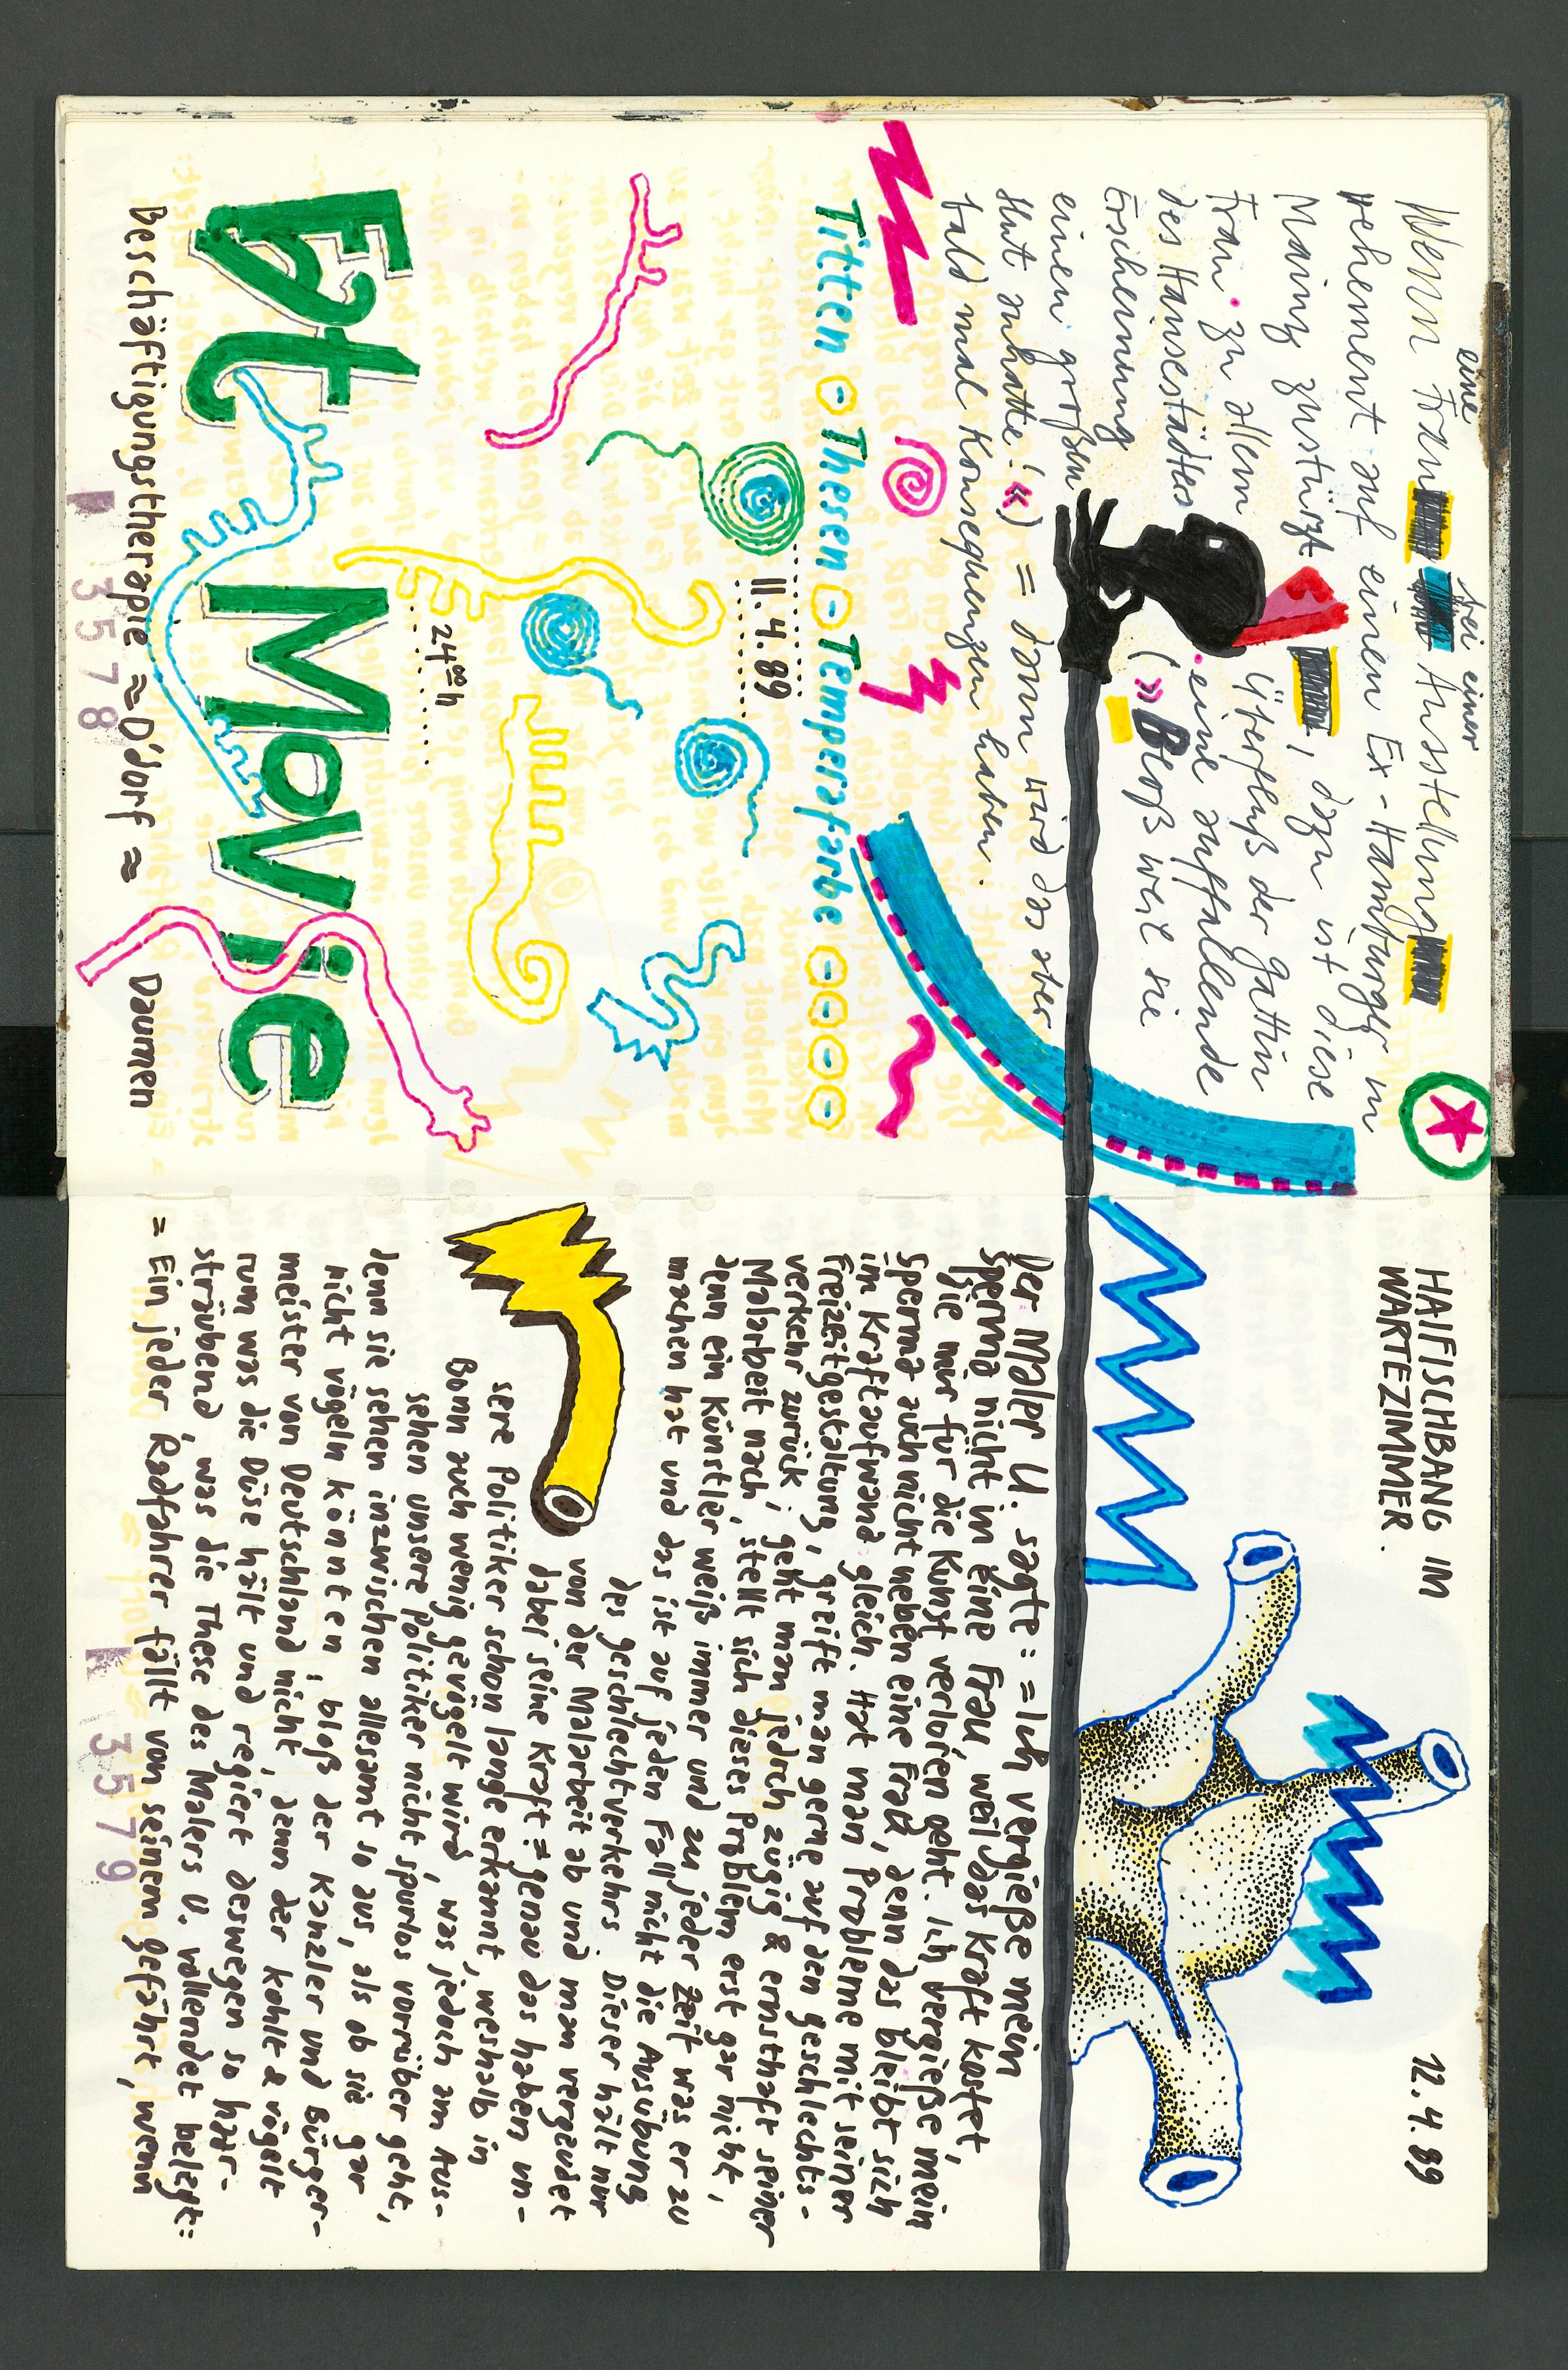 Wenn eine Frau bei einer Ausstellung
vehement auf einen Ex-Hamburger in
Mainz zustürzt, dazu ist diese
Frau zu allem Überfluß der Gattin
des Hansestädters eine auffallende
Erscheinung (»Bloß weil sie
einen großen
Hut anhatte!«) = dann wird das aber
bald mal Konsequenzen haben.
Titten Thesen Temperafarbe
11.4.89
24⁰⁰h
Ezt Movie
Beschäftigungstherapie ≈ D'dorf ≈ Daumen
K 3578
HAIFISCHBANG IM
WARTEZIMMER.
12.4.89
Der Maler U. sagte: =Ich vergieße mein
Sperma nicht in eine Frau weil das Kraft kostet,
die mir für die Kunst verloren geht. Ich vergieße mein
Sperma auch nicht neben eine Frau, denn das bleibt sich
im Kraftaufwand gleich. Hat man Probleme mit seiner
Freizeitgestaltung, greift man gerne auf den geschlechts-
verkehr zurück; geht man jedoch zügig & ernsthaft seiner
Malarbeit nach, stellt sich dieses Problem erst gar nicht,
denn ein Künstler weiß immer und zu jeder Zeit was er zu
machen hat und das ist auf jeden Fall nicht die Ausübung
des geschlechtverkehrs Dieser hält nur
von der Malarbeit ab und man vergeudet
dabei seine Kraft = genau das haben un-
sere Politiker schon lange erkannt, weshalb in
Bonn auch wenig gevögelt wird, was jedoch am Aus-
sehen unsere Politiker nicht spurlos vorrüber geht,
denn sie sehen inzwischen allesamt so aus, als ob sie gar
nicht vögeln könnten; bloß der Kanzler und Bürger-
meister von Deutschland nicht, denn der kohlt & vögelt
rum was die Düse hält und regiert deswegen so haar-
sträubend, was die These des Malers U. vollendet belegt:
= Ein jeder Radfahrer fällt von seinem gefährt, wenn
K 3579